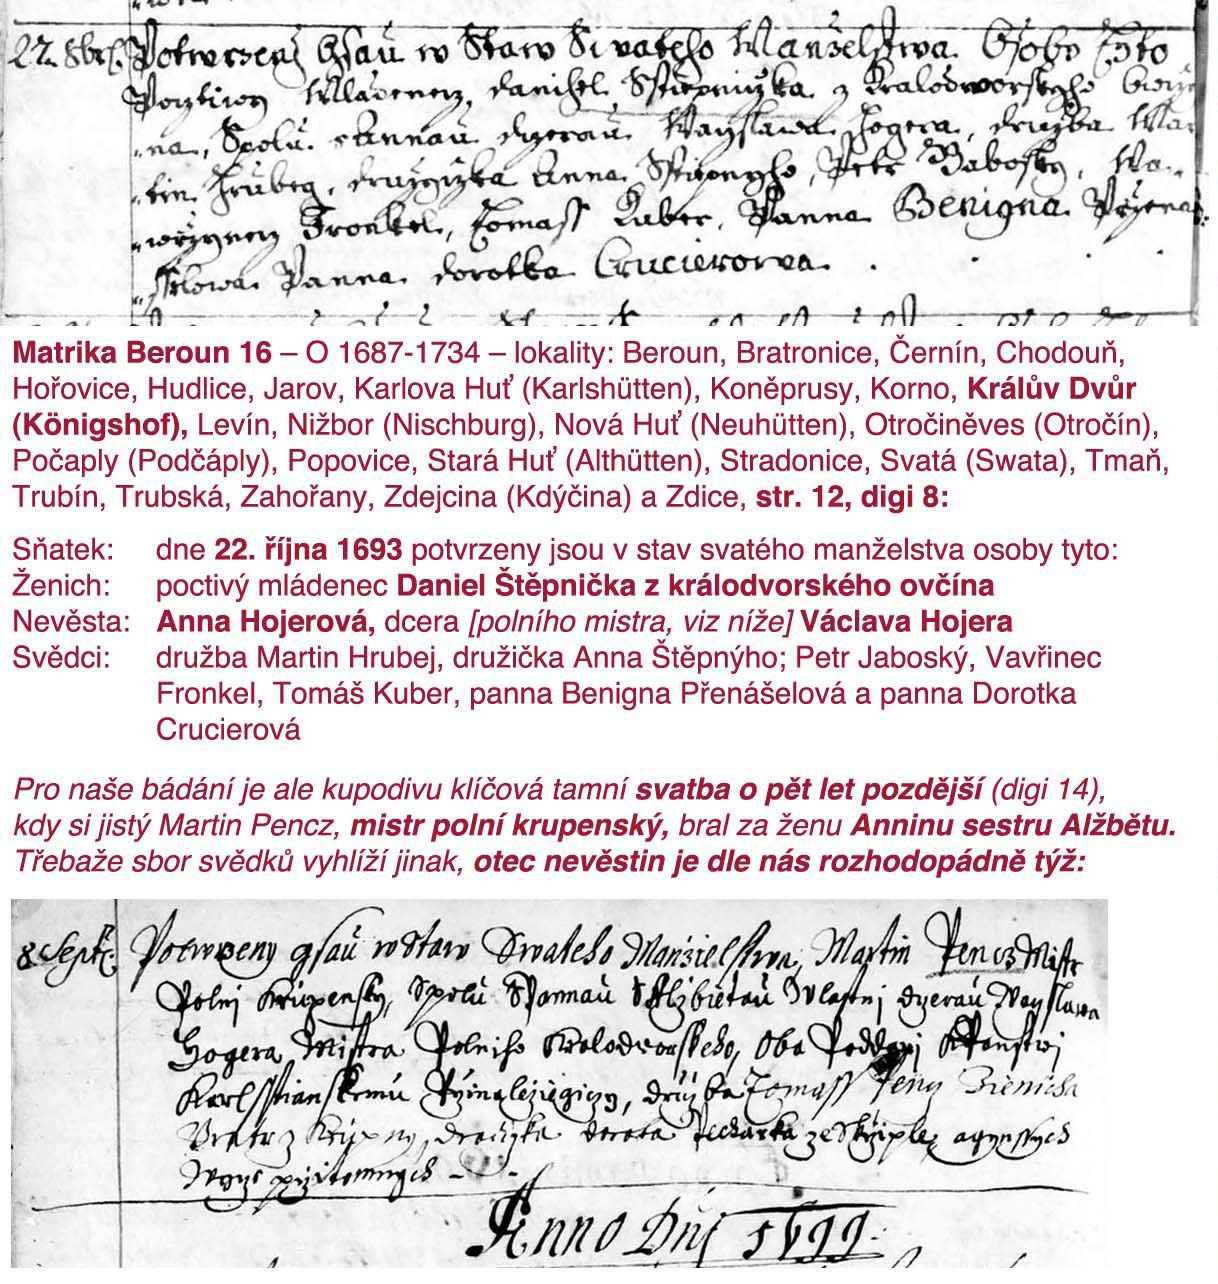 22. 8br. Potwrzenj Gsau w Staw Swateho Manželstwa. Osoby Tyto
Pocztiwy Mladenecz, danihel Sstiepniczka z Kralodworskyho Owcży
na, Spolu s Annau dczerau Waczslawa Hogera, družba Mar
tin Hrubeg, družiczka Anna Sstiepnyho, Petr Jabosky, Wa
wržynecz Fronkel, Tomass Kuber, Panna Benigna Pržena
sselowa Panna dorotka Crucierowa.
Matrika Beroun 16 – O 1687-1734 – lokality: Beroun, Bratronice, Černín, Chodouň,
Hořovice, Hudlice, Jarov, Karlova Huť (Karlshütten), Koněprusy, Korno, Králův Dvůr
(Königshof), Levín, Nižbor (Nischburg), Nová Huť (Neuhütten), Otročiněves (Otročín),
Počaply (Podčáply), Popovice, Stará Huť (Althütten), Stradonice, Svatá (Swata), Tmaň,
Trubín, Trubská, Zahořany, Zdejcina (Kdýčina) a Zdice, str. 12, digi 8:
Sňatek: dne 22. října 1693 potvrzeny jsou v stav svatého manželstva osoby tyto:
Ženich: poctivý mládenec Daniel Štěpnička z králodvorského ovčína
Nevěsta: Anna Hojerová, dcera [polního mistra, viz níže] Václava Hojera
Svědci: družba Martin Hrubej, družička Anna Štěpnýho; Petr Jaboský, Vavřinec
Fronkel, Tomáš Kuber, panna Benigna Přenášelová a panna Dorotka
Crucierová
Pro naše bádání je ale kupodivu klíčová tamní svatba o pět let pozdější (digi 14),
kdy si jistý Martin Pencz, mistr polní krupenský, bral za ženu Anninu sestru Alžbětu.
Třebaže sbor svědků vyhlíží jinak, otec nevěstin je dle nás rozhodopádně týž:
8 Sept: Potwrzeny gsau w Staw Swateho Manžielstwa, Martin Pencz Mistr
Polnj Krupensky, Spolu S Pannau Alžbietau Wlastnj dczerau Waczslawa
Hogera, Mistra Polniho Kralodworskeho, Oba Poddanj K Panstwj
Karlsstianskemu Pržinaležiegiczy, družba Tomass Ženicha
Bratr z Krupny, družička dorota ze Skržiple, a gynssych
Wycz pržitomnych
Anno Dnj 1699.